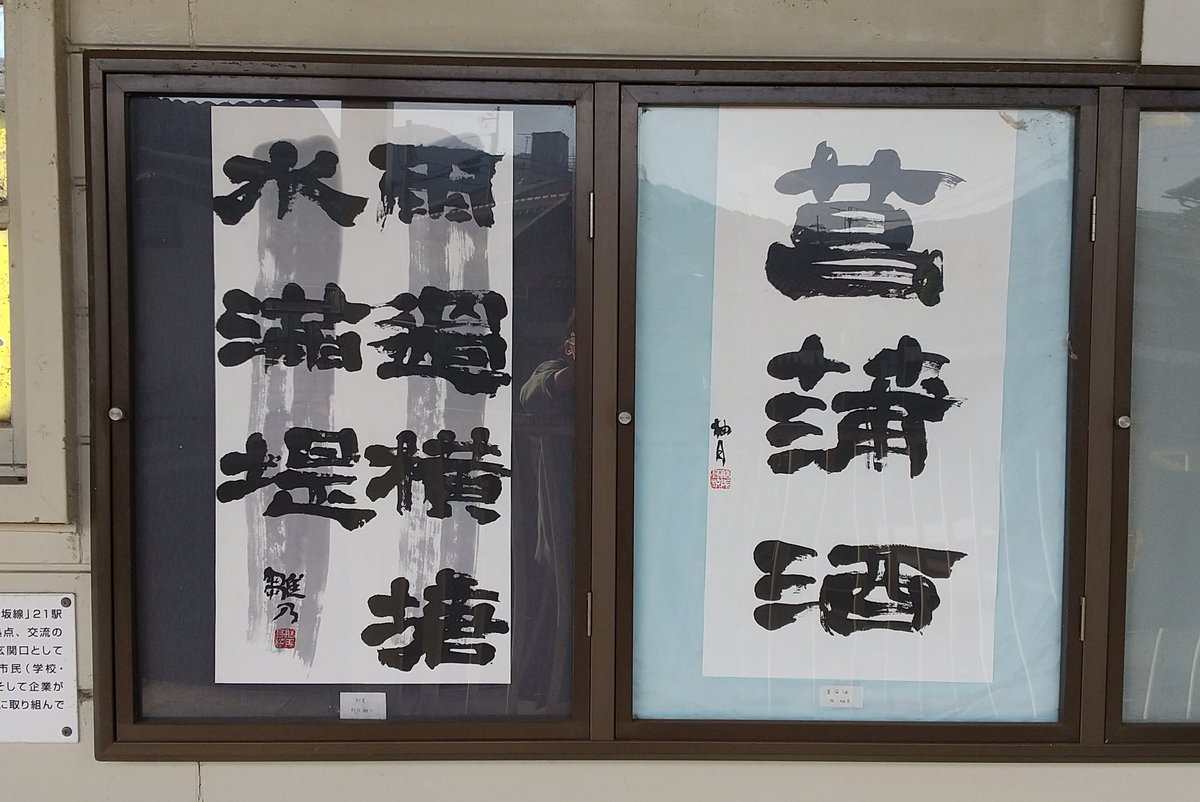 雨過横塘
水満堤
雛乃
菖蒲酒
柚月
菖蒲酒
柚月
坂線」21駅
点、交流の
玄関口として
市民(学校・
そして企業が
に取り組んで